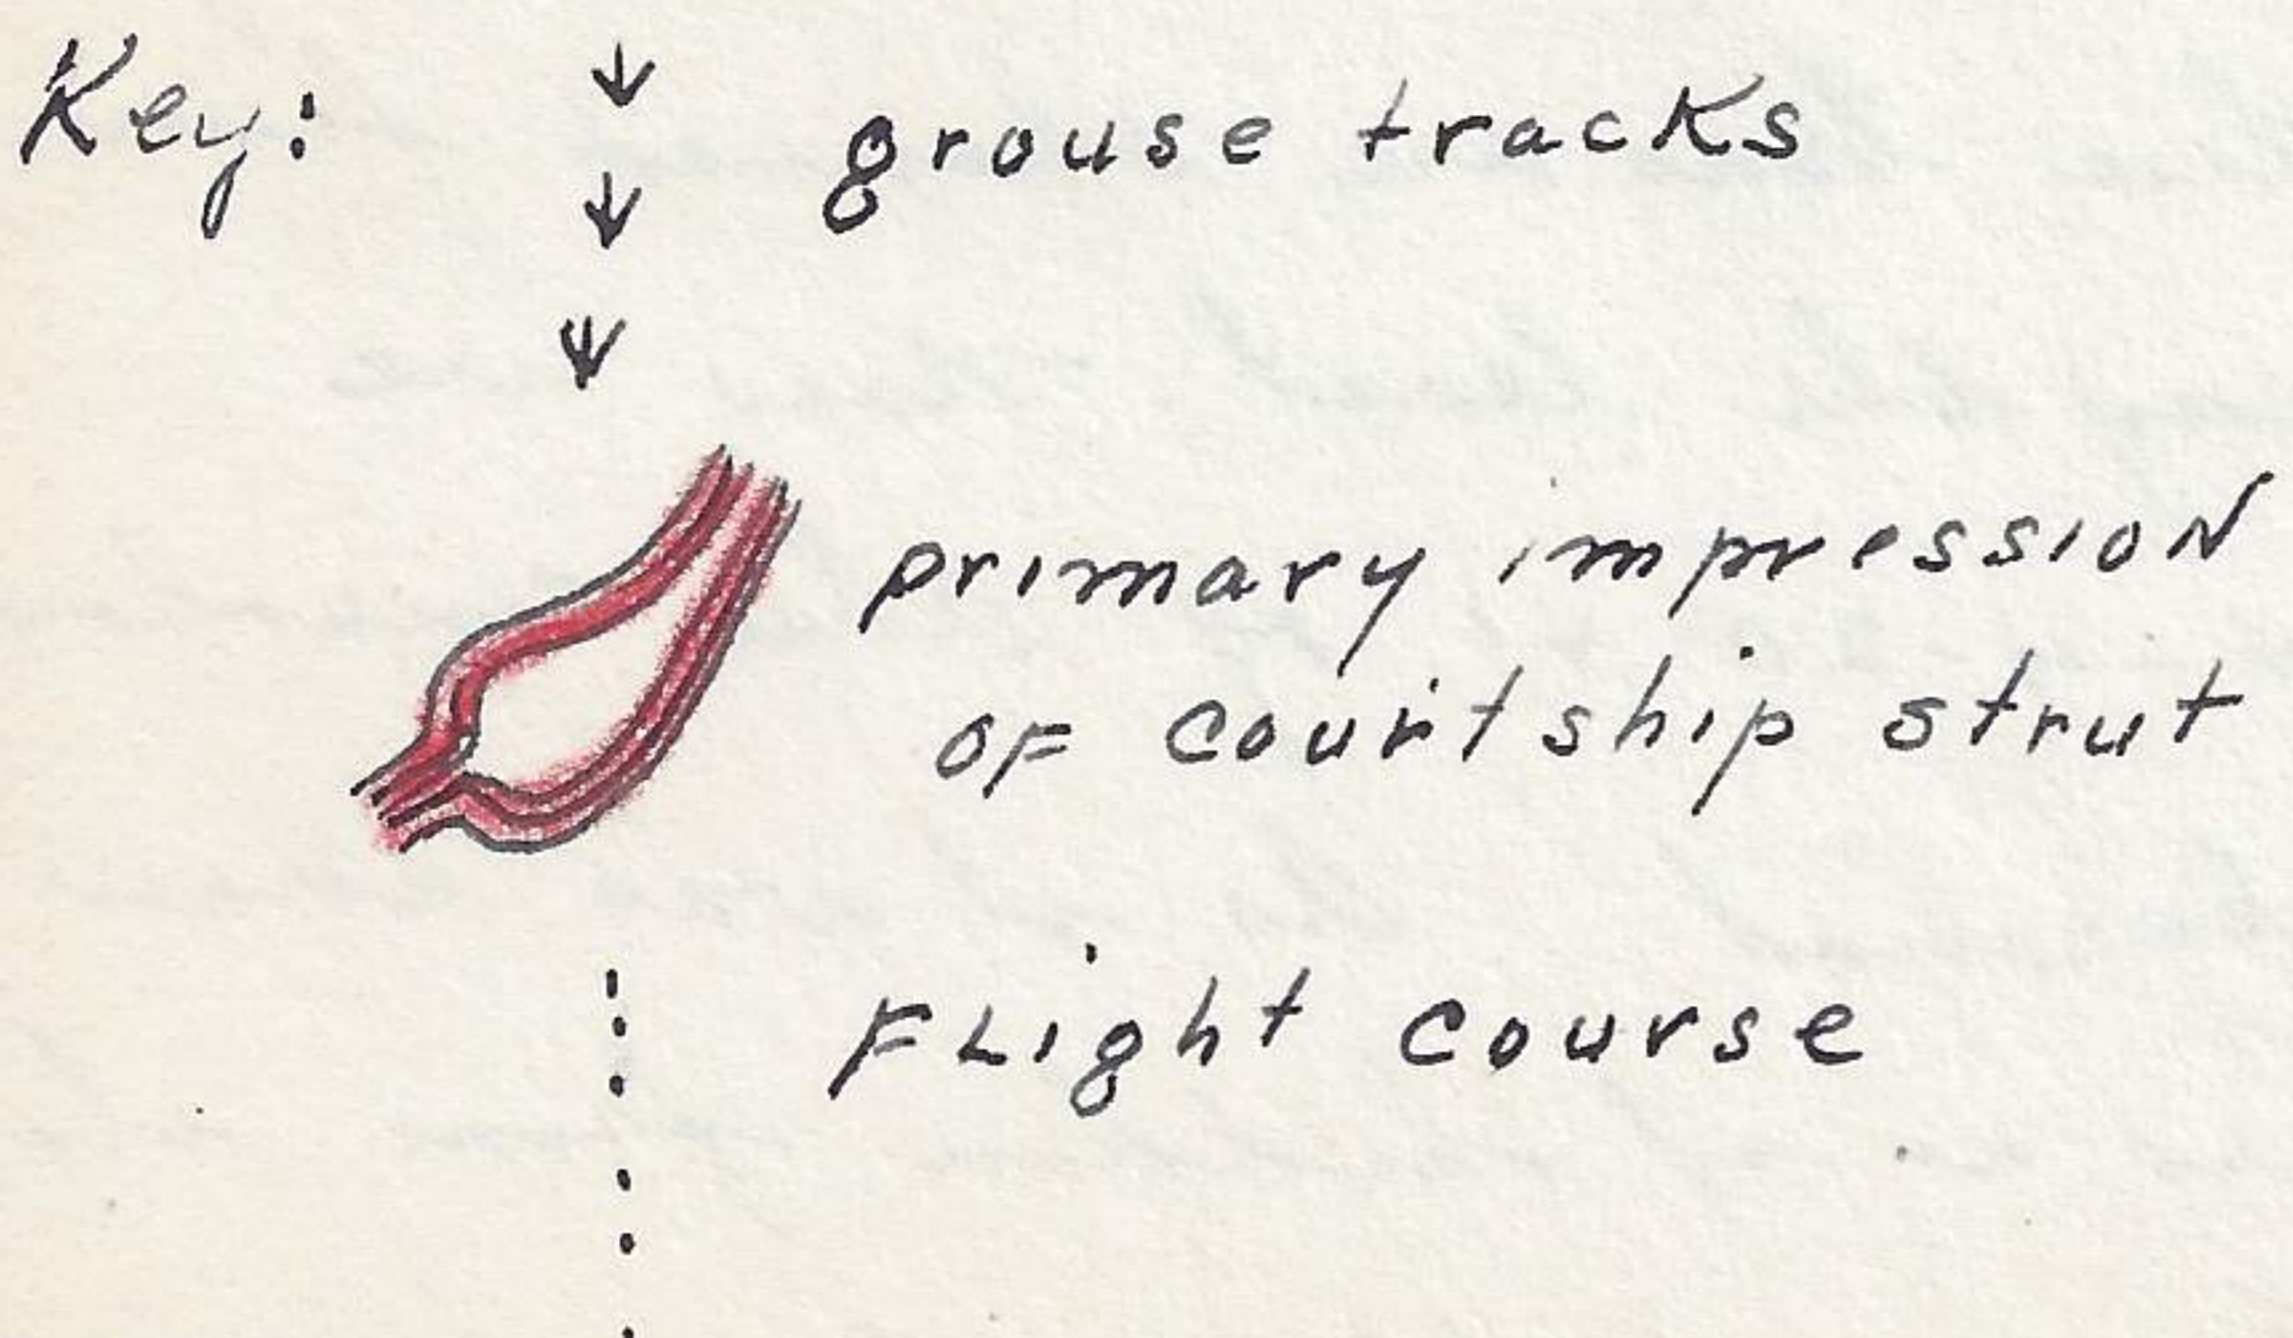 Key:
grouse tracks
primary impression
of courtship strut
Flight course